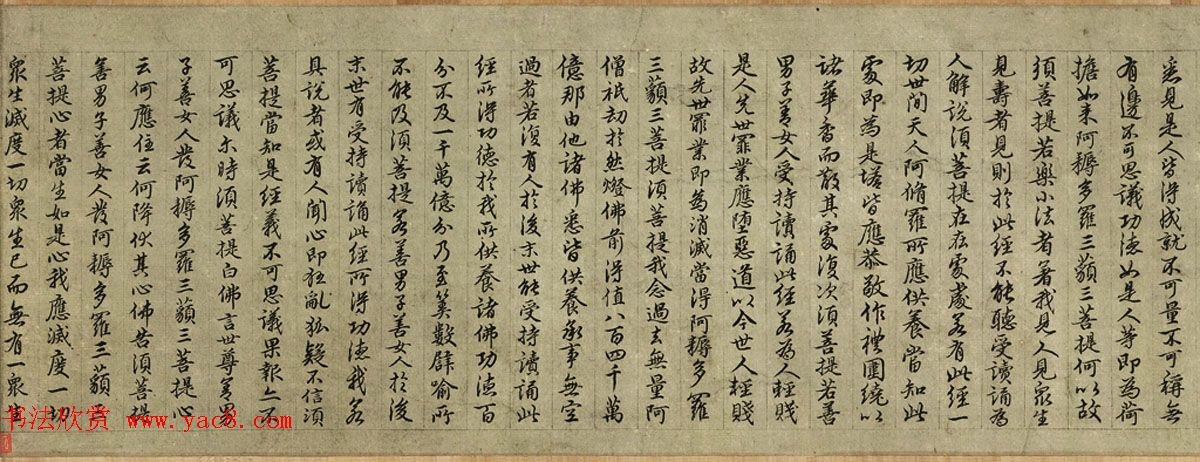 悉見是人皆得成就不可量不可稱無
有邊不可思議功德如是人等即為荷
擔如来阿耨多羅三藐三菩提何以故
須菩提若樂小法者著我見人見衆生
見壽者見則於此經不能聽受讀誦為
人解說須菩提在在處處若有此經一
切世間天人阿脩羅所應供養當知此
處即為是塔皆應恭敬作禮圍繞以
諸華香而散其處復次須菩提若善
男子善女人受持讀誦此經若為人輕賤
是人先世罪業應墮惡道以今世人輕賤
故先世罪業即為消滅當得阿耨多羅
三藐三菩提須菩提我念過去無量阿
僧祇劫於然燈佛前得值八百四千萬
億那由他諸佛悉皆供養承事無空
過者若復有人於後末世能受持讀誦此
經所得功德於我所供養諸佛功德百
分不及一千萬億分乃至算數譬喻所
不能及須菩提若善男子善女人於後
末世有受持讀誦此經所得功德我若
具說者或有人聞心即狂亂狐疑不信須
菩提當知是經義不可思議果報亦不
可思議尓時須菩提白佛言世尊善男
子善女人發阿耨多羅三藐三菩提心
云何應住云何降伏其心佛告須菩提
善男子善女人發阿耨多羅三藐三
菩提心者當生如是心我應滅度一切
衆生滅度一切衆生已而無有一衆生
书法欣赏 www.yac8.com